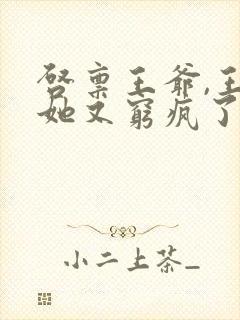 啓稟王爺,王
她又窮瘋了
小二上茶_